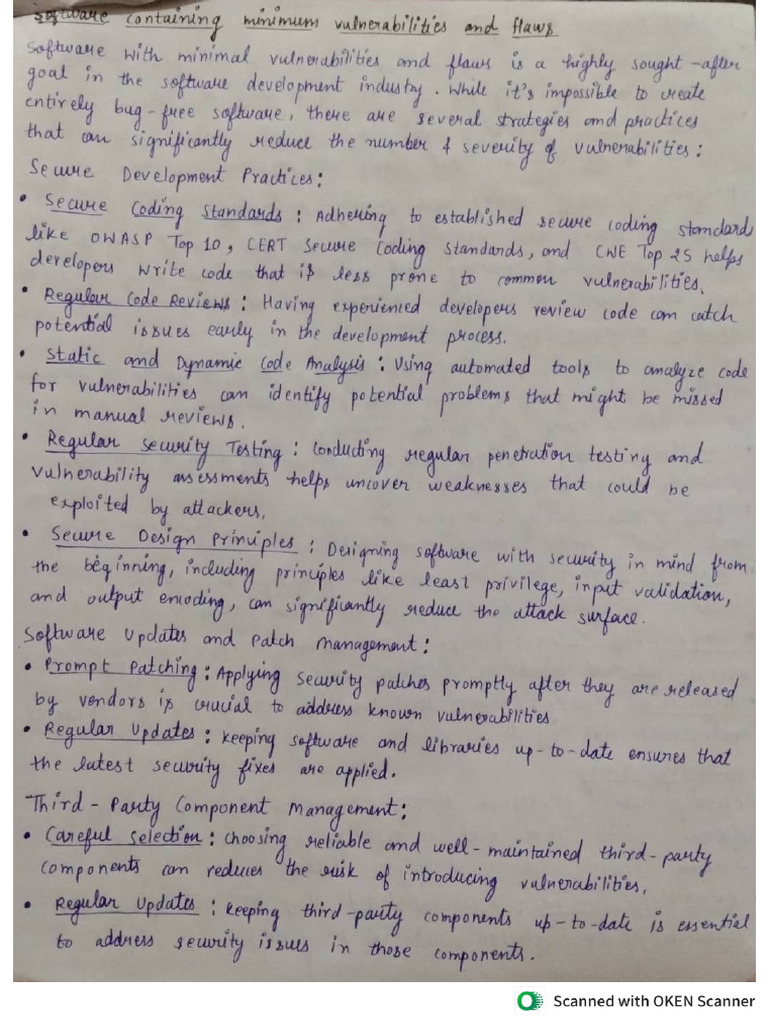 Software containing minimum vulnerabilities and flaws
Software with minimal vulnerabilities and flaws is a highly sought-after
goal in the software development industry. While it's impossible to create
entirely bug-free software, there are several strategies and practices
that can significantly reduce the number & severity of vulnerabilities:
Secure Development Practices:
• Secure Coding Standards: Adhering to established secure coding standards
like OWASP Top 10, CERT Secure Coding Standards, and CWE Top 25 helps
developers write code that is less prone to common vulnerabilities.
• Regular Code Reviews: Having experienced developers review code can catch
potential issues early in the development process.
• Static and Dynamic Code Analysis: Using automated tools to analyze code
for vulnerabilities can identify potential problems that might be missed
in manual reviews.
• Regular Security Testing: Conducting regular penetration testing and
vulnerability assessments helps uncover weaknesses that could be
exploited by attackers.
• Secure Design Principles: Designing software with security in mind from
the beginning, including principles like least privilege, input validation,
and output encoding, can significantly reduce the attack surface.
Software Updates and Patch Management:
• Prompt Patching: Applying security patches promptly after they are released
by vendors is crucial to address known vulnerabilities
• Regular Updates: Keeping software and libraries up-to-date ensures that
the latest security fixes are applied.
Third-Party Component Management:
• Careful Selection: Choosing reliable and well-maintained third-party
components can reduces the risk of introducing vulnerabilities.
• Regular Updates: Keeping third-party components up-to-date is essential
to address security issues in those components.
Scanned with OKEN Scanner